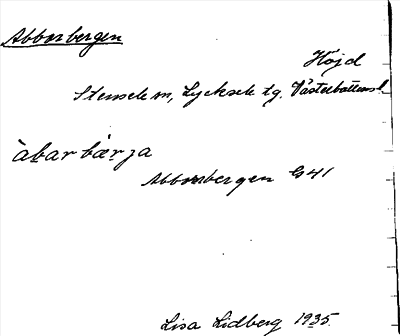 Abborbergen
Höjd
Stensele sn, Lycksele tg. Västerbottens l.
àbar bærja
Abborbergen G41
Lisa Lidberg 1935.